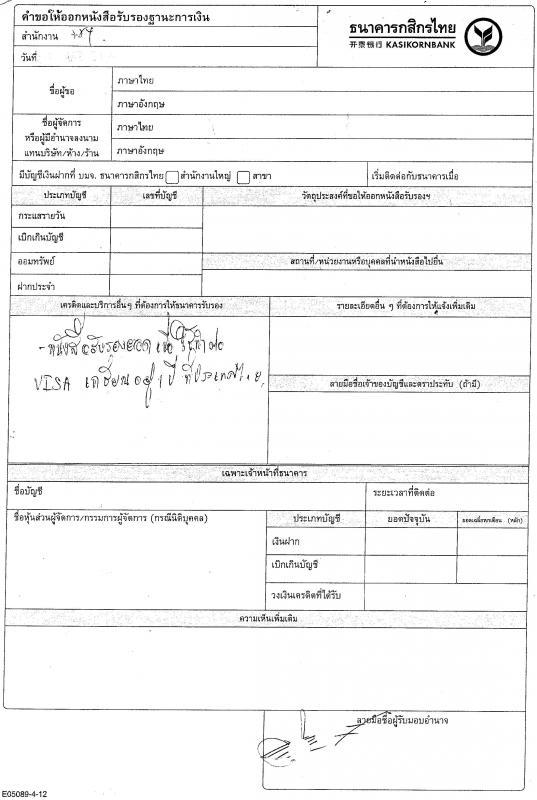 คำขอให้ออกหนังสือรับรองฐานะการเงิน
ธนาคารกสิกรไทย
开泰银行 KASIKORNBANK
สำนักงาน
วันที่
ชื่อผู้ขอ
ภาษาไทย
ภาษาอังกฤษ
ชื่อผู้จัดการ
หรือผู้มีอำนาจลงนาม
แทนบริษัท/ห้าง/ร้าน
ภาษาไทย
ภาษาอังกฤษ
มีบัญชีเงินฝากที่ บมจ. ธนาคารกสิกรไทย สำนักงานใหญ่ สาขา
เริ่มติดต่อกับธนาคารเมื่อ
ประเภทบัญชี เลขที่บัญชี วัตถุประสงค์ที่ขอให้ออกหนังสือรับรองฯ
กระแสรายวัน
เบิกเกินบัญชี
ออมทรัพย์ สถานที่/หน่วยงานหรือบุคคลที่นำหนังสือไปยื่น
ฝากประจำ
เครดิตและบริการอื่นๆ ที่ต้องการให้ธนาคารรับรอง รายละเอียดอื่น ๆ ที่ต้องการให้แจ้งเพิ่มเติม
- หนังสือรับรองยอด เพื่อ
VISA เกษียณอยู่ 1 ปี ที่ประเทศไทย
ลายมือชื่อเจ้าของบัญชีและตราประทับ (ถ้ามี)
เฉพาะเจ้าหน้าที่ธนาคาร
ชื่อบัญชี ระยะเวลาที่ติดต่อ
ชื่อหุ้นส่วนผู้จัดการ/กรรมการผู้จัดการ (กรณีนิติบุคคล) ประเภทบัญชี ยอดปัจจุบัน ยอดเฉลี่ยหกเดือน (หลัก)
เงินฝาก
เบิกเกินบัญชี
วงเงินเครดิตที่ได้รับ
ความเห็นเพิ่มเติม
ลายมือชื่อผู้รับมอบอำนาจ
E05089-4-12